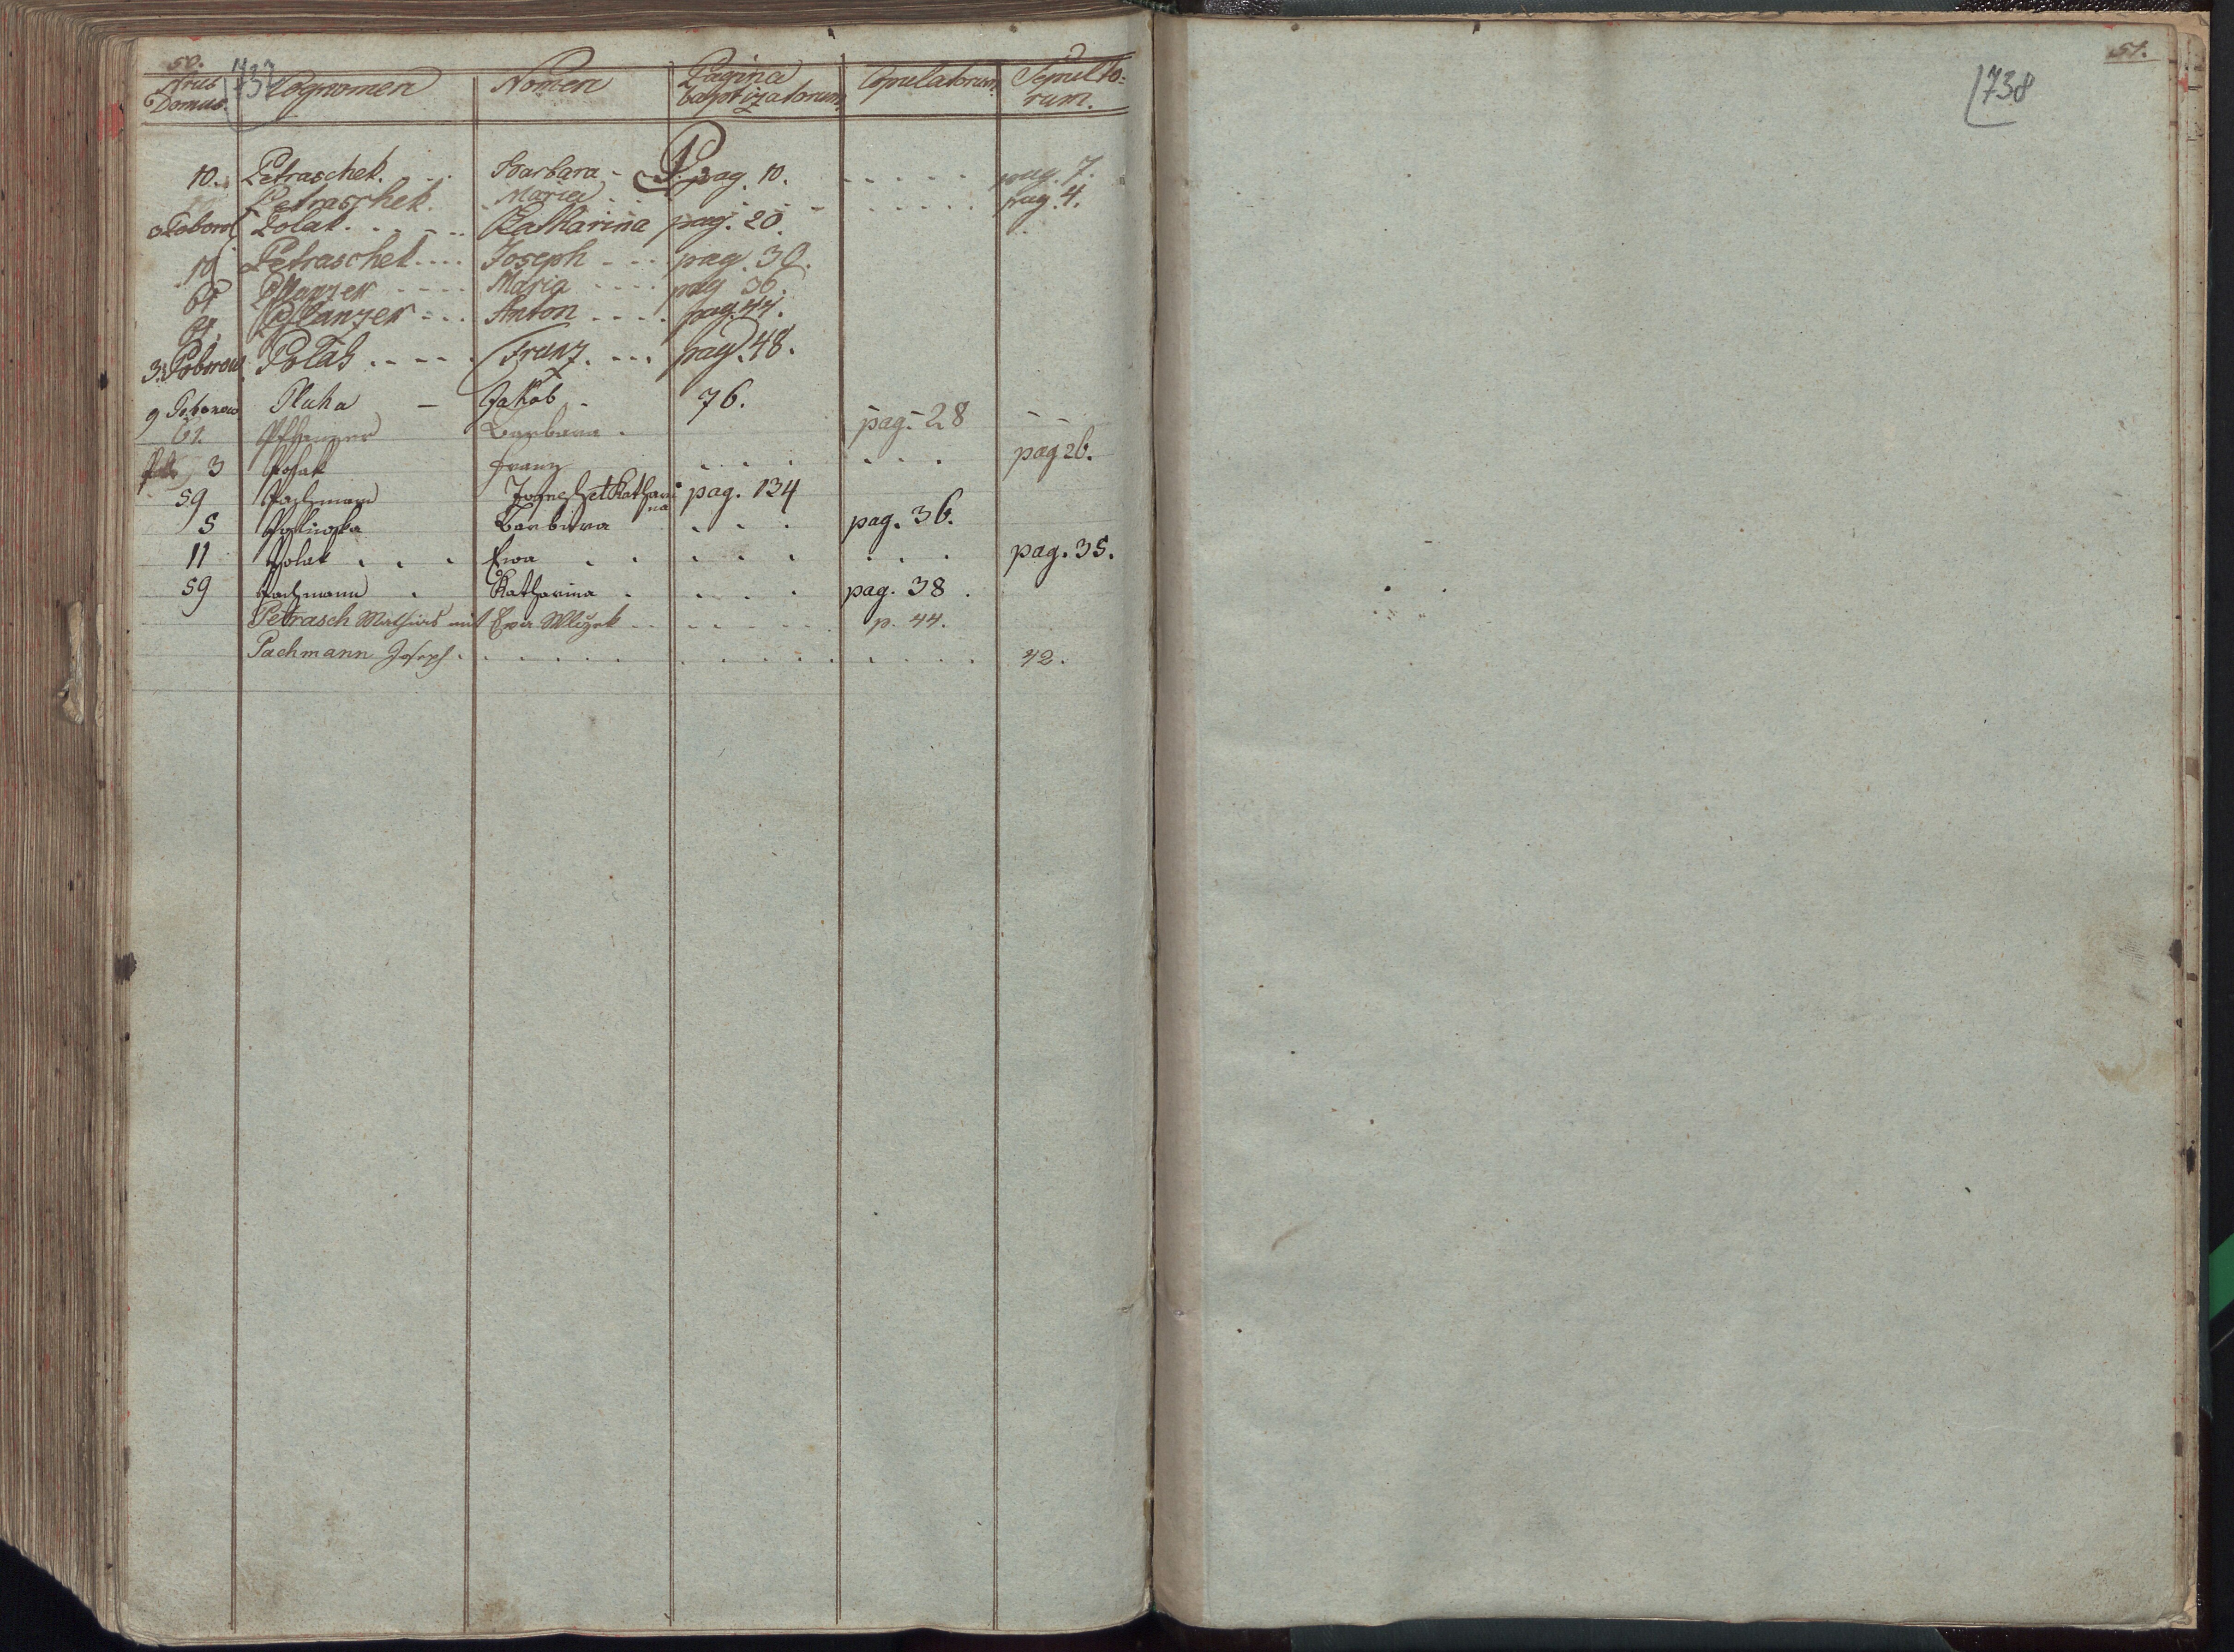 50. 737
Nrus Domus. Cognomen Nomen Pagina baptizatorum Copulatorum Sepultorum.
P.
10. Petraschek. Barbara - pag. 10. . . . . . pag. 7.
Petraschek. Maria . . . . . . . pag. 4.
3 Poborow Polak. . . . . . Katharina pag. 20.
10 Petraschek . . . . Joseph - - - pag. 30.
61 Pflanzer - - - - Maria . . . . pag 36.
61. Pflanzer - - - Anton . . . . pag. 44.
3. Poborow Polak . . . . . Franz. . . . pag. 48.
9 Poborow Pluha - Jakob - 76.
61. Pflanzer Barbara . pag. 28
3 Polak Franz . . . . . . pag 26.
59 Pachmann Ignez et Katharina pag. 134
5 Barbara . . . pag. 36.
11 Polak . . . Ewa . . . . . . . . pag. 35.
59 Pachmann . Katharina . . . . pag. 38 .
Petrasch Mathias mit Eva . . . . . . p. 44.
Pachmann Joseph . . . . . . . . . . . . . . 42.
51.
738